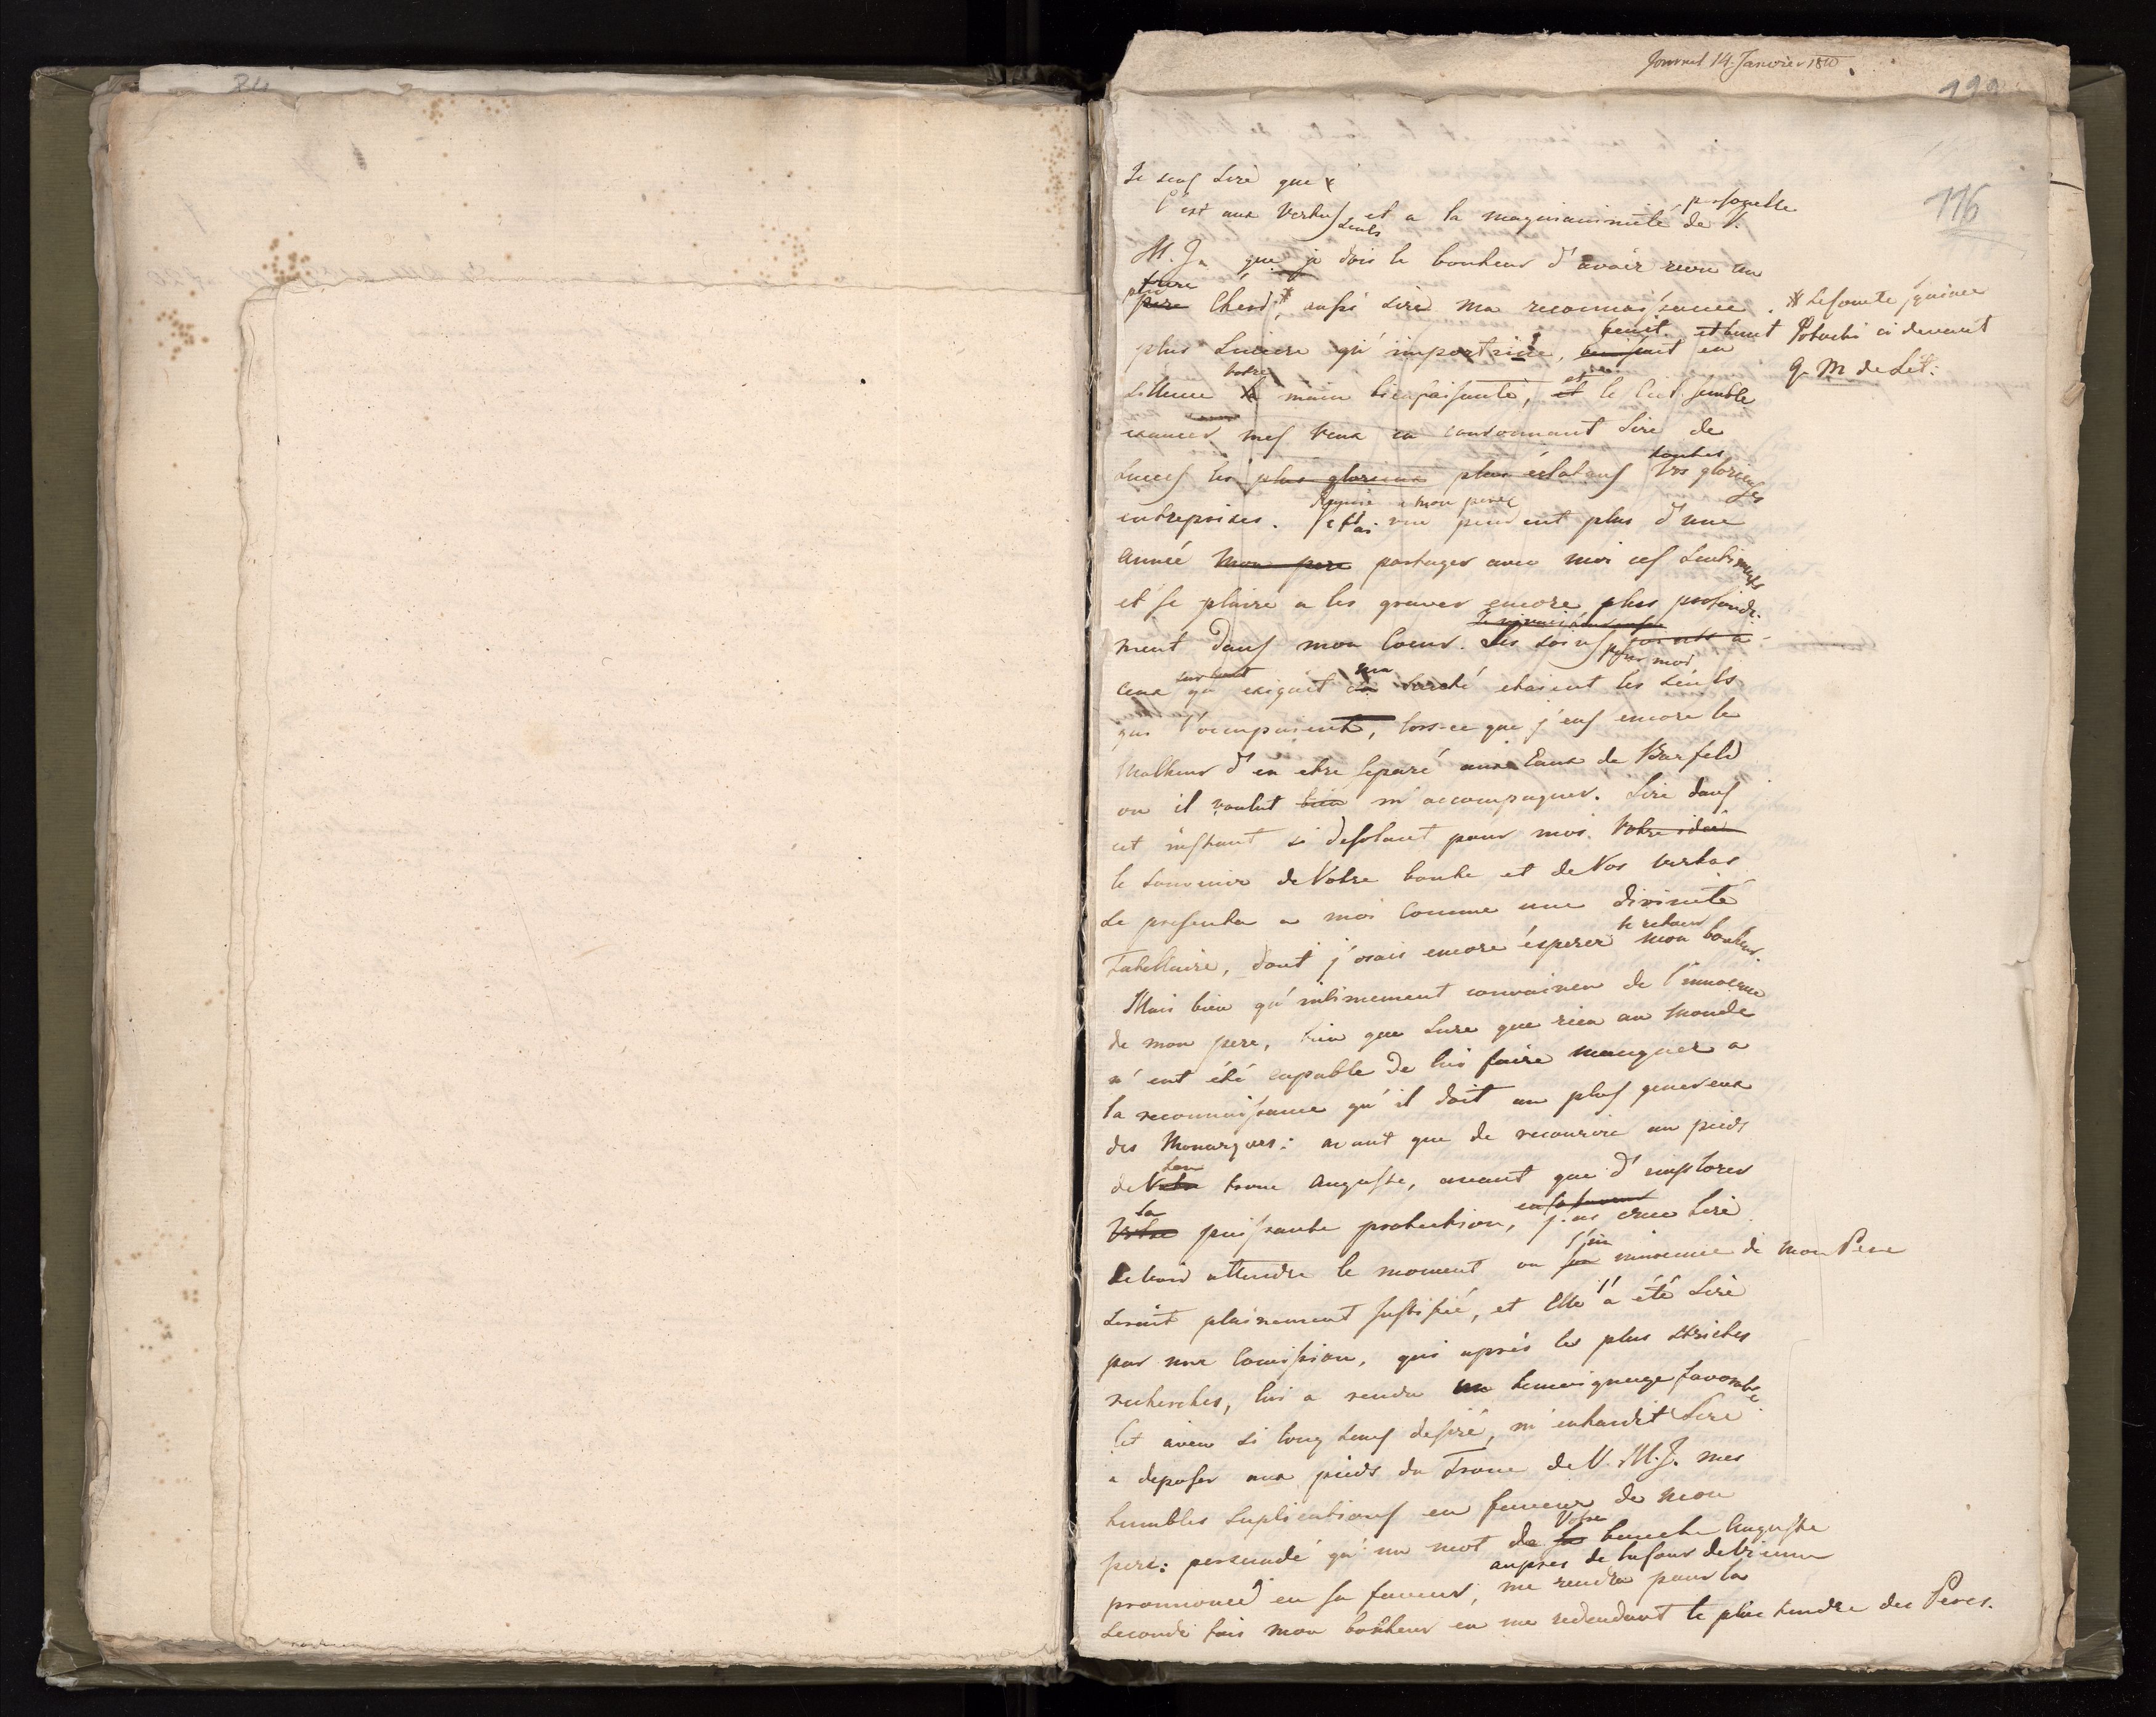 84
Journal 14. Janvier 1810
199
116
Je sens Sire que
C'est aux Vertus, et a la magnanimité personelle de V.
seuls
M. J. que je dois le bonheur d'avoir revu un
frere
pere Cheri*, aussi Sire ma reconnaissance
* Le Comte ignace
Potocki ci devant
G. M. de Lit:
plus sincere qu'importune, benit, et en
silence votre main bienfaisante, et le Ciel semble
exaucer mes veux en couronnant Sire de
succes les plus glorieux plus éclatans toutes Vos glorieuses
entreprises. Remise a mon pere
j'ai vue pendent plus d'une
année mon pere partager avec moi ces sentiments
et se plaire a les graver encore plus profonde-
ment dans mon Coeur. Ses soins pour moi
ceux qu'exigait ma santé etaient les seuls
qui l'occupaient, lors-ce que j'eus encore le
Malheur d'en etre separé aux Eaux de Barfeld
ou il voulut bien m'accompagner. Sire dans
cet instant si desolant pour moi. Votre idée
le souvenir de Votre bonte et de Vos vertus
se presenta a moi Comme une divinité
Tutellaire, dont j'osais encore ésperer le retour mon bonheur.
Mais bien qu'intimement convaincu de l'innocence
de mon pere, bien que sure que rien au Monde
n'eut été capable de lui faire manquer a
la reconnaissance qu'il doit au plus genereux
des Monarques: avant que de recourir au pieds
de Votre son trone Auguste, avant que d'implorer
Votre sa puissante protection, en sa faveur j'ai crue Sire
devoir attendre le moment ou sa l'innocence de mon Pere
serait plainement justifié, et Elle l'a été Sire
par une Comission, qui aprés les plus strictes
recherches, lui a rendu un temoignage favorable
Cet aveu si long tems desiré, m'enhardit Sire
a deposer aux pieds du Trone de V. M. J. mes
humbles suplications en faveur de mon
pere: persuadé qu'un mot de sa Votre bouche Auguste
prononcé en sa faveur, aupres de la Cour de Vienne
me rendra pour la
seconde fois mon bonheur en me redendant le plus tendre des Peres.